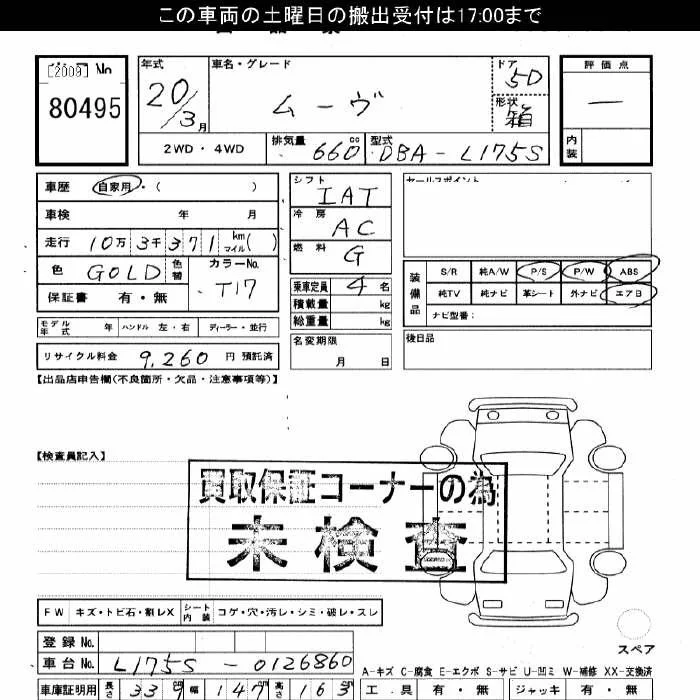 この車両の土曜日の搬出受付は17:00まで
[2009] No
80495
年式 20/3月
車名・グレード ムーヴ
ドア 5D
形状 箱
評価点 —
内装
2WD・4WD
排気量 660 cc
型式 DBA-L175S
車歴 自家用・( )
車検 年 月
走行 10万3千371 km マイル( )
色 GOLD 色替 カラーNo. T17
保証書 有・無
シフト IAT
冷房 AC
燃料 G
乗車定員 4名
積載量 kg
総重量 kg
セールスポイント
装備品 S/R 純A/W P/S P/W ABS
純TV 純ナビ 革シート 外ナビ エアB
ナビ型番:
モデル年式 年 ハンドル 左・右 ディーラー・並行
名変期限 月 日
後日品
リサイクル料金 9,260 円 預託済
【出品店申告欄(不良箇所・欠品・注意事項等)】
【検査員記入】
買取保証コーナーの為
未検査
FW キズ・トビ石・割レX シート内装 コゲ・穴・汚レ・シミ・破レ・スレ
登録No.
車台No. L175S-0126860
スペア
A-キズ C-腐食 E-エクボ S-サビ U-凹ミ W-補修 XX-交換済
車庫証明用 長さ 339 幅 147 高さ 163
工具 有・無 ジャッキ 有・無